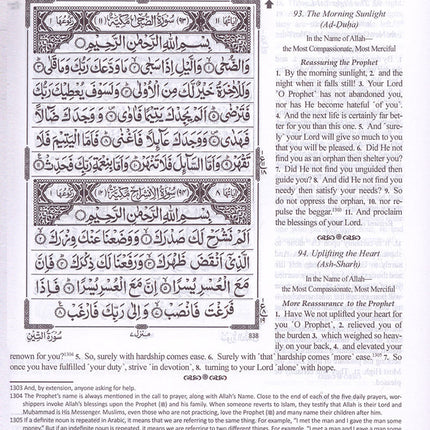 سُوْرَةُ الضُّحٰى مَكِّيَّةٌ
بِسْمِ اللّٰهِ الرَّحْمٰنِ الرَّحِيْمِ
وَالضُّحٰى ۝١ وَالَّيْلِ اِذَا سَجٰى ۝٢ مَا وَدَّعَكَ رَبُّكَ وَمَا قَلٰى ۝٣
وَلَلْاٰخِرَةُ خَيْرٌ لَّكَ مِنَ الْاُوْلٰى ۝٤ وَلَسَوْفَ يُعْطِيْكَ رَبُّكَ
فَتَرْضٰى ۝٥ اَلَمْ يَجِدْكَ يَتِيْمًا فَاٰوٰى ۝٦ وَوَجَدَكَ ضَآلًّا
فَهَدٰى ۝٧ وَوَجَدَكَ عَآئِلًا فَاَغْنٰى ۝٨ فَاَمَّا الْيَتِيْمَ فَلَا
تَقْهَرْ ۝٩ وَاَمَّا السَّآئِلَ فَلَا تَنْهَرْ ۝١٠ وَاَمَّا بِنِعْمَةِ رَبِّكَ فَحَدِّثْ ۝١١
سُوْرَةُ الْاِنْشِرَاحِ مَكِّيَّةٌ
بِسْمِ اللّٰهِ الرَّحْمٰنِ الرَّحِيْمِ
اَلَمْ نَشْرَحْ لَكَ صَدْرَكَ ۝١ وَوَضَعْنَا عَنْكَ وِزْرَكَ ۝٢
الَّذِيْٓ اَنْقَضَ ظَهْرَكَ ۝٣ وَرَفَعْنَا لَكَ ذِكْرَكَ ۝٤ فَاِنَّ
مَعَ الْعُسْرِ يُسْرًا ۝٥ اِنَّ مَعَ الْعُسْرِ يُسْرًا ۝٦ فَاِذَا
فَرَغْتَ فَانْصَبْ ۝٧ وَاِلٰى رَبِّكَ فَارْغَبْ ۝٨
سُوْرَةُ التِّيْنِ
منزل ٧
838
93. The Morning Sunlight
(Aḍ-Ḍuḥa)
In the Name of Allah—
the Most Compassionate, Most Merciful
Reassuring the Prophet
1. By the morning sunlight, 2. and the
night when it falls still! 3. Your Lord
˹O Prophet˺ has not abandoned you,
nor has He become hateful ˹of you˺.
4. And the next life is certainly far bet-
ter for you than this one. 5. And ˹sure-
ly˺ your Lord will give so much to you
that you will be pleased. 6. Did He not
find you as an orphan then shelter you?
7. Did He not find you unguided then
guide you? 8. And did He not find you
needy then satisfy your needs? 9. So
do not oppress the orphan, 10. nor re-
pulse the beggar.1303 11. And proclaim
the blessings of your Lord.
94. Uplifting the Heart
(Ash-Sharḥ)
In the Name of Allah—
the Most Compassionate, Most Merciful
More Reassurance to the Prophet
1. Have We not uplifted your heart for
you ˹O Prophet˺, 2. relieved you of
the burden 3. which weighed so heav-
ily on your back, 4. and elevated your
renown for you?1304 5. So, surely with hardship comes ease. 6. Surely with ˹that˺ hardship comes ˹more˺ ease.1305 7. So
once you have fulfilled ˹your duty˺, strive ˹in devotion˺, 8. turning to your Lord ˹alone˺ with hope.
1303 And, by extension, anyone asking for help.
1304 The Prophet's name is always mentioned in the call to prayer, along with Allah's Name. Close to the end of each of the five daily prayers, wor-
shippers invoke Allah's blessings upon the Prophet (ﷺ) and his family. When someone reverts to Islam, they must testify that Allah is their Lord and
Muḥammad is His Messenger. Muslims, even those who are not practicing, love the Prophet (ﷺ) and many name their children after him.
1305 If a definite noun is repeated in Arabic, it means that we are referring to the same thing. For example, "I met the man and I gave the man some
money." But if an indefinite noun is repeated, it means that we are referring to two different things. For example, "I met a man and I gave a man some